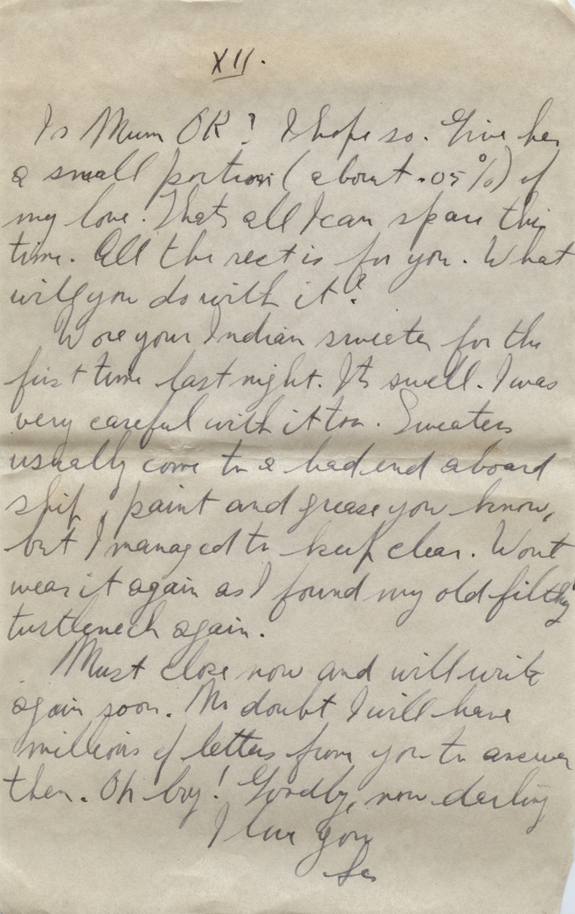 XII.
Is Mum OK? I hope so. Give her
a small portion (about .05%) of
my love. Thats all I can spare this
time. All the rest is for you. What
will you do with it?
Wore your Indian sweater for the
first time last night. It's swell. I was
very careful with it too. Sweaters
usually come to a bad end aboard
ship, paint and grease you know,
but I managed to keep clear. Wont
wear it again as I found my old filthy
turtleneck again.
Must close now and will write
again soon. No doubt I will have
millions of letters from you to answer
then. Oh boy! Goodby, now darling
I love you